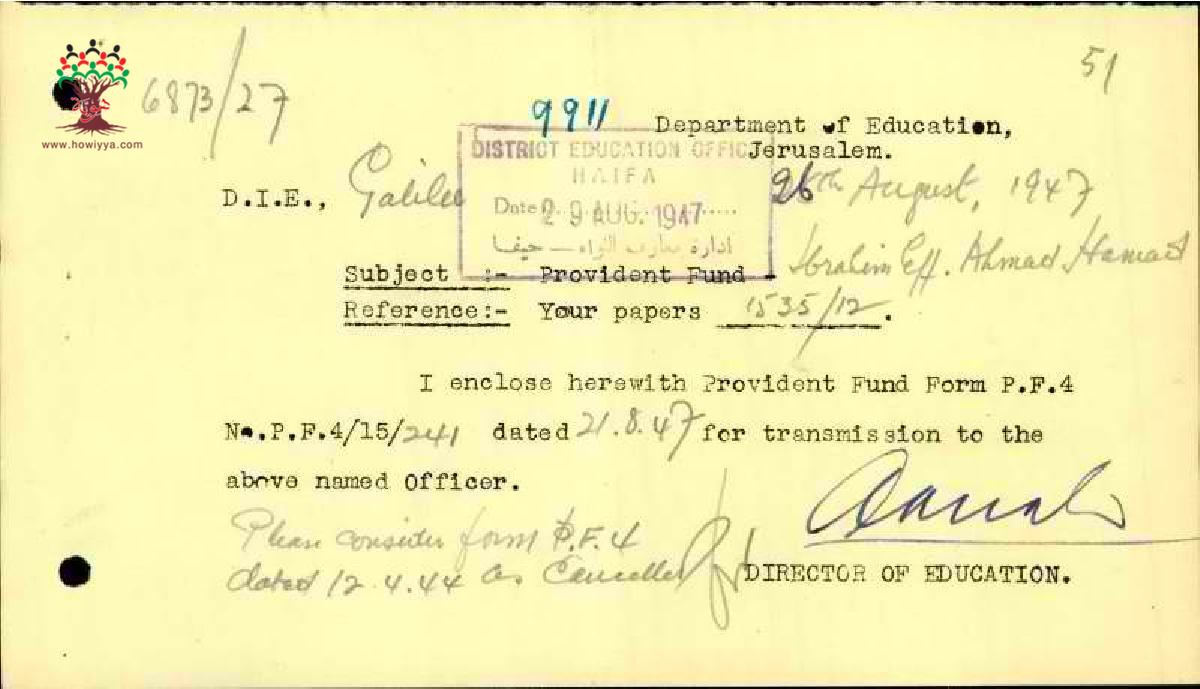 51
6873/27
www.howiyya.com
9911
Department of Education,
Jerusalem.
DISTRICT EDUCATION OFFICE
HAIFA
Date 29 AUG. 1947
ادارة معارف اللواء — حيفا
D.I.E., Galilee
26th August, 1947
Subject :- Provident Fund - Ibrahim Eff. Ahmad Hamad
Reference:- Your papers 1535/12.
I enclose herewith Provident Fund Form P.F.4
No.P.F.4/15/241 dated 21.8.47 for transmission to the
above named Officer.
Please consider form P.F.4
dated 12.4.44 as Cancelled
for DIRECTOR OF EDUCATION.